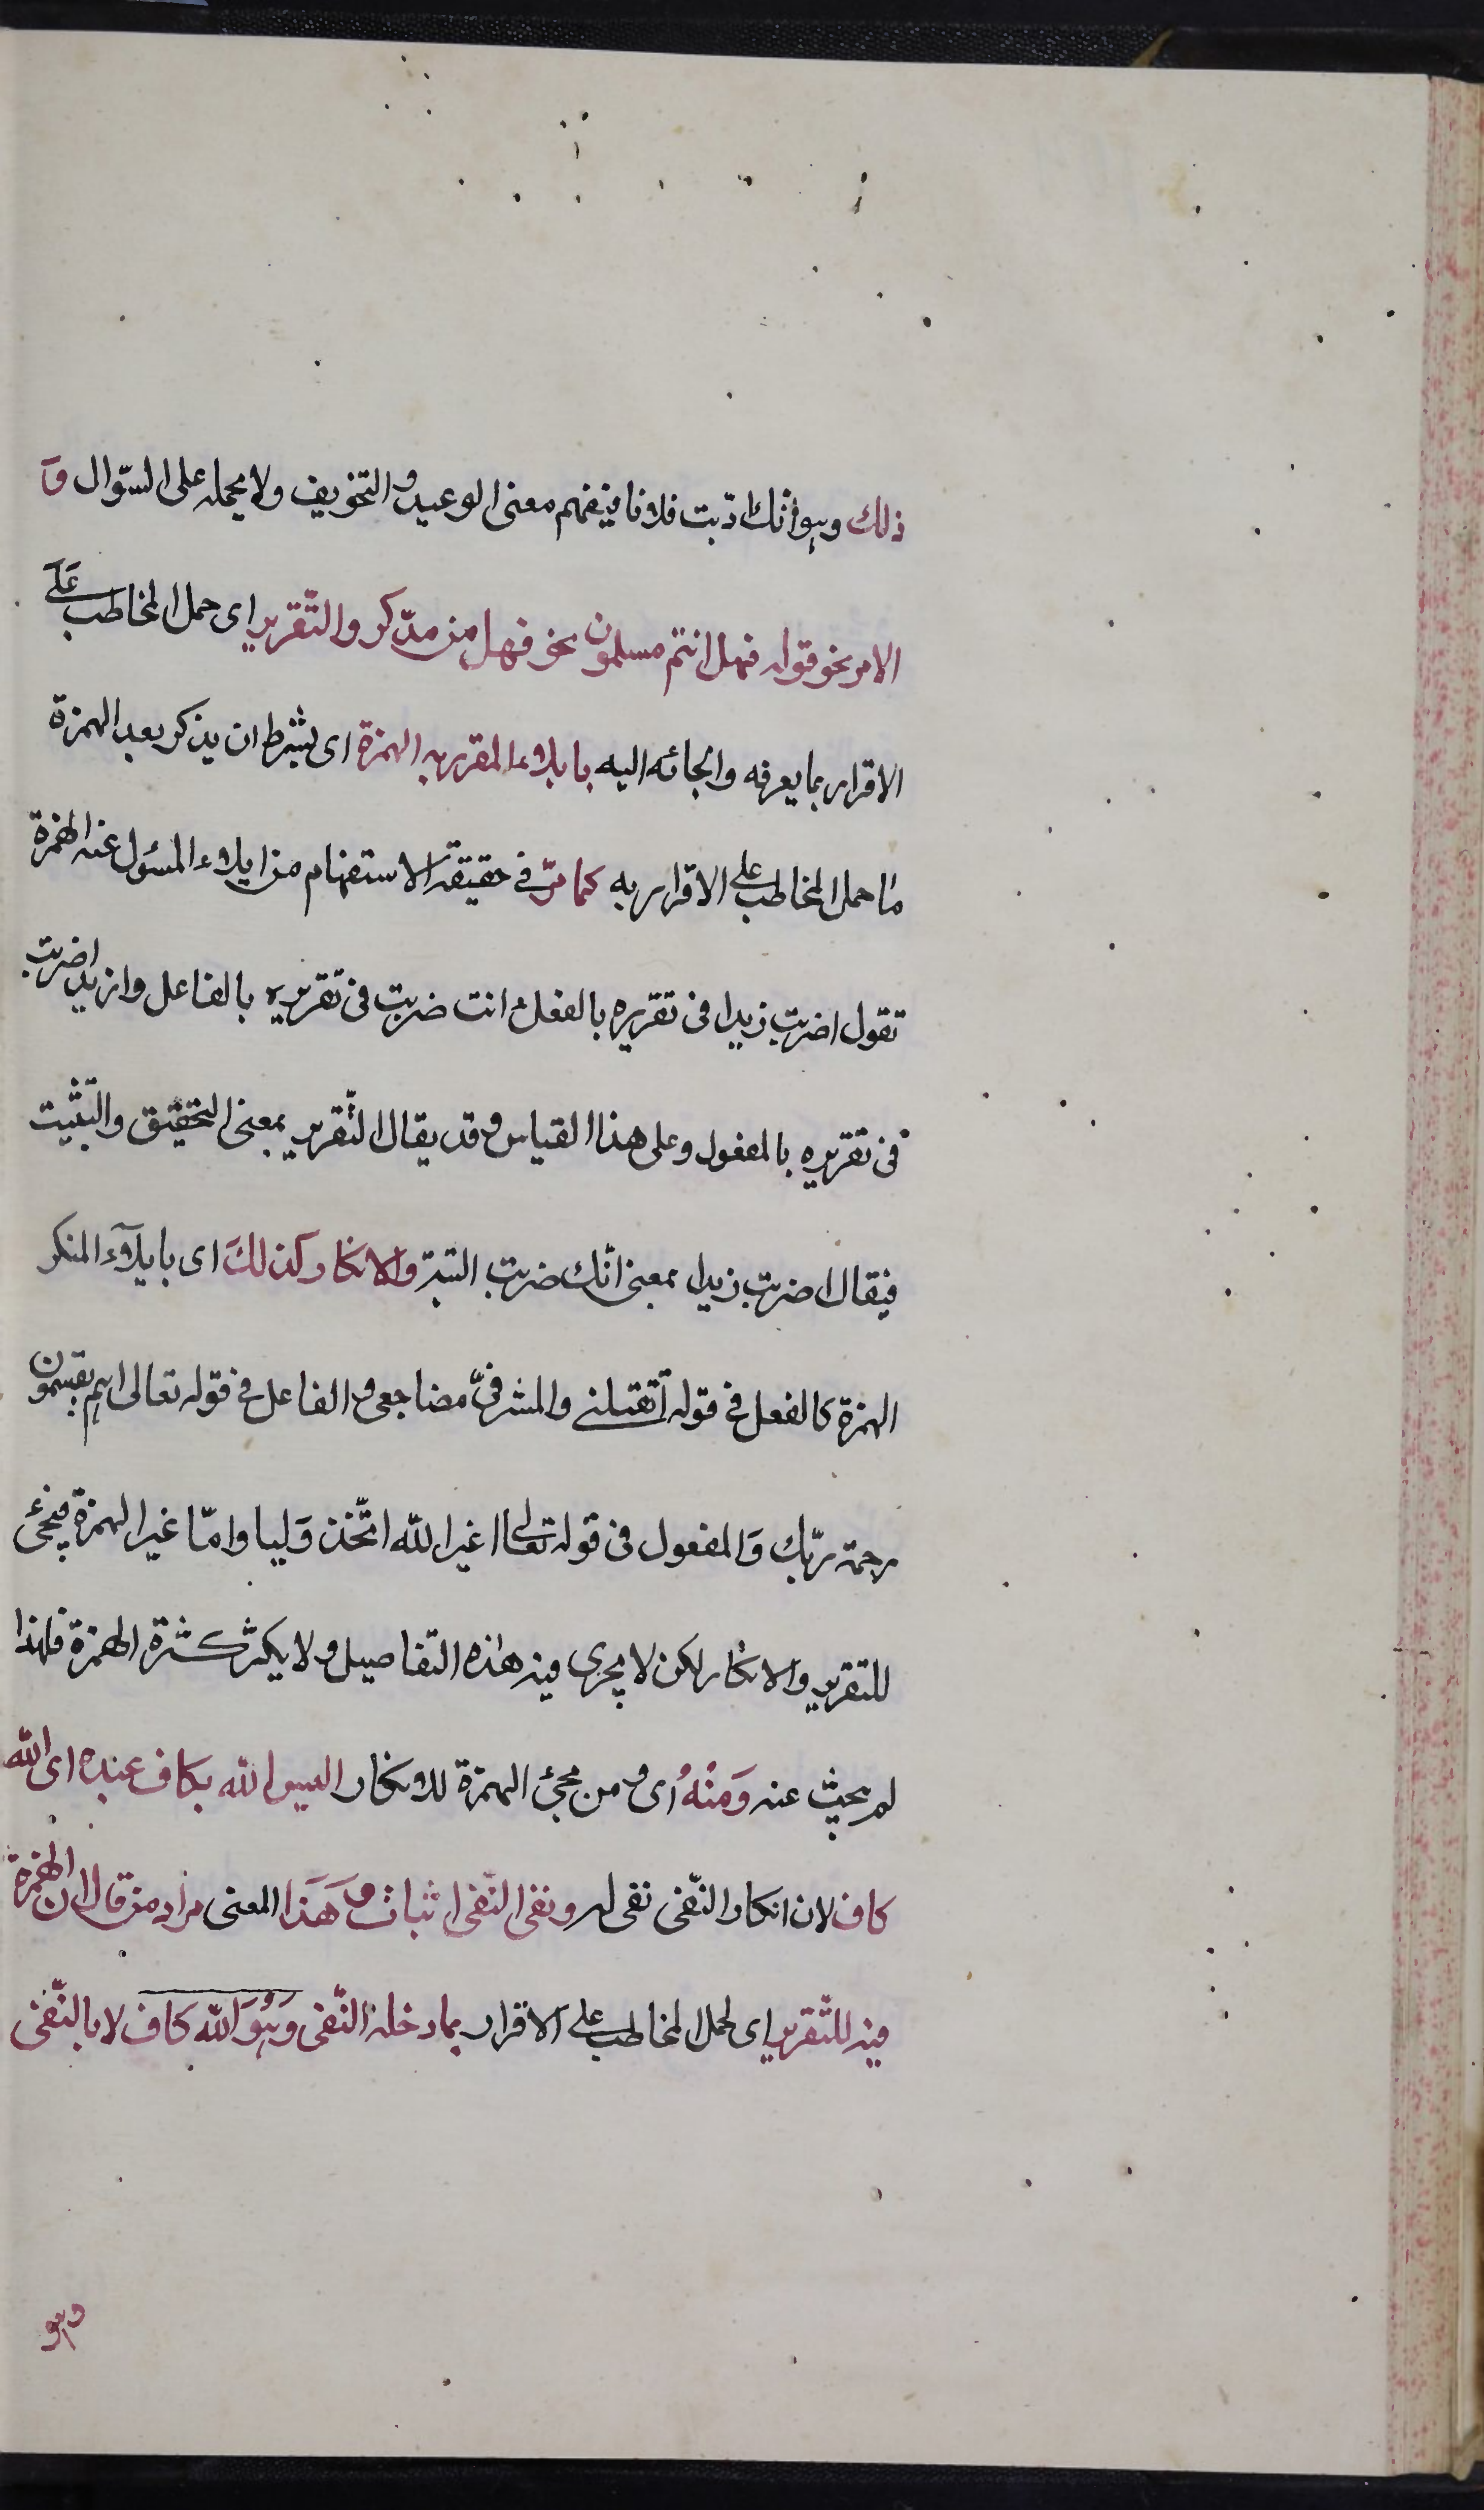 ذلك وهو انك ادّبت فلانا فيفهم معنى الوعيد والتخويف ولا يحمله على السّوال وَ
الامر نحو قوله فهل انتم مسلمون نحو فهل من مدّكر والتّقرير اى حمل المخاطب عَلَى
الاقرار بما يعرفه والجائه اليه بايلاء المقرر به الهمزة اى بشرط ان يذكر بعد الهمزة
ما حمل المخاطب على الاقرار به كما مرّ فى حقيقة الاستفهام من ايلاء المسئول عنه الهمزة
تقول اضربت زيدا فى تقريره بالفعل وانت ضربت فى تقريره بالفاعل وازيدا ضربت
فى تقريره بالمفعول وعلى هذا القياس وقد يقال التّقرير بمعنى التحقيق والتّثبيت
فيقال اضربت زيدا بمعنى انّك ضربت البتة والانكار كذلكَ اى بايلآء المنكر
الهمزة كالفعل فى قوله أتقتلنى والمشرفىّ مضاجعى والفاعل فى قوله تعالى اهم يقسمون
رحمة ربّك وَالمفعول فى قوله تعالى اغير الله اتّخذ وَليا وامّا غير الهمزة فيجئ
للتقرير والانكار لكن لا يجرى فيه هذه التفاصيل ولا يكثر كثرة الهمزة فلهذا
لم يبحث عنه وَمنْهُ اى ومن مجئ الهمزة للانكار اليس الله بكاف عبده اى الله
كاف لان انكار النّفى نفى له ونفى النّفى اثبات وَهَذَا المعنى مراد من قال ان الهمزة
فيه للتّقرير اى لحمل المخاطب على الاقرار بما دخله النّفى وَهُوَ الله كاف لا بالنّفى
وهو